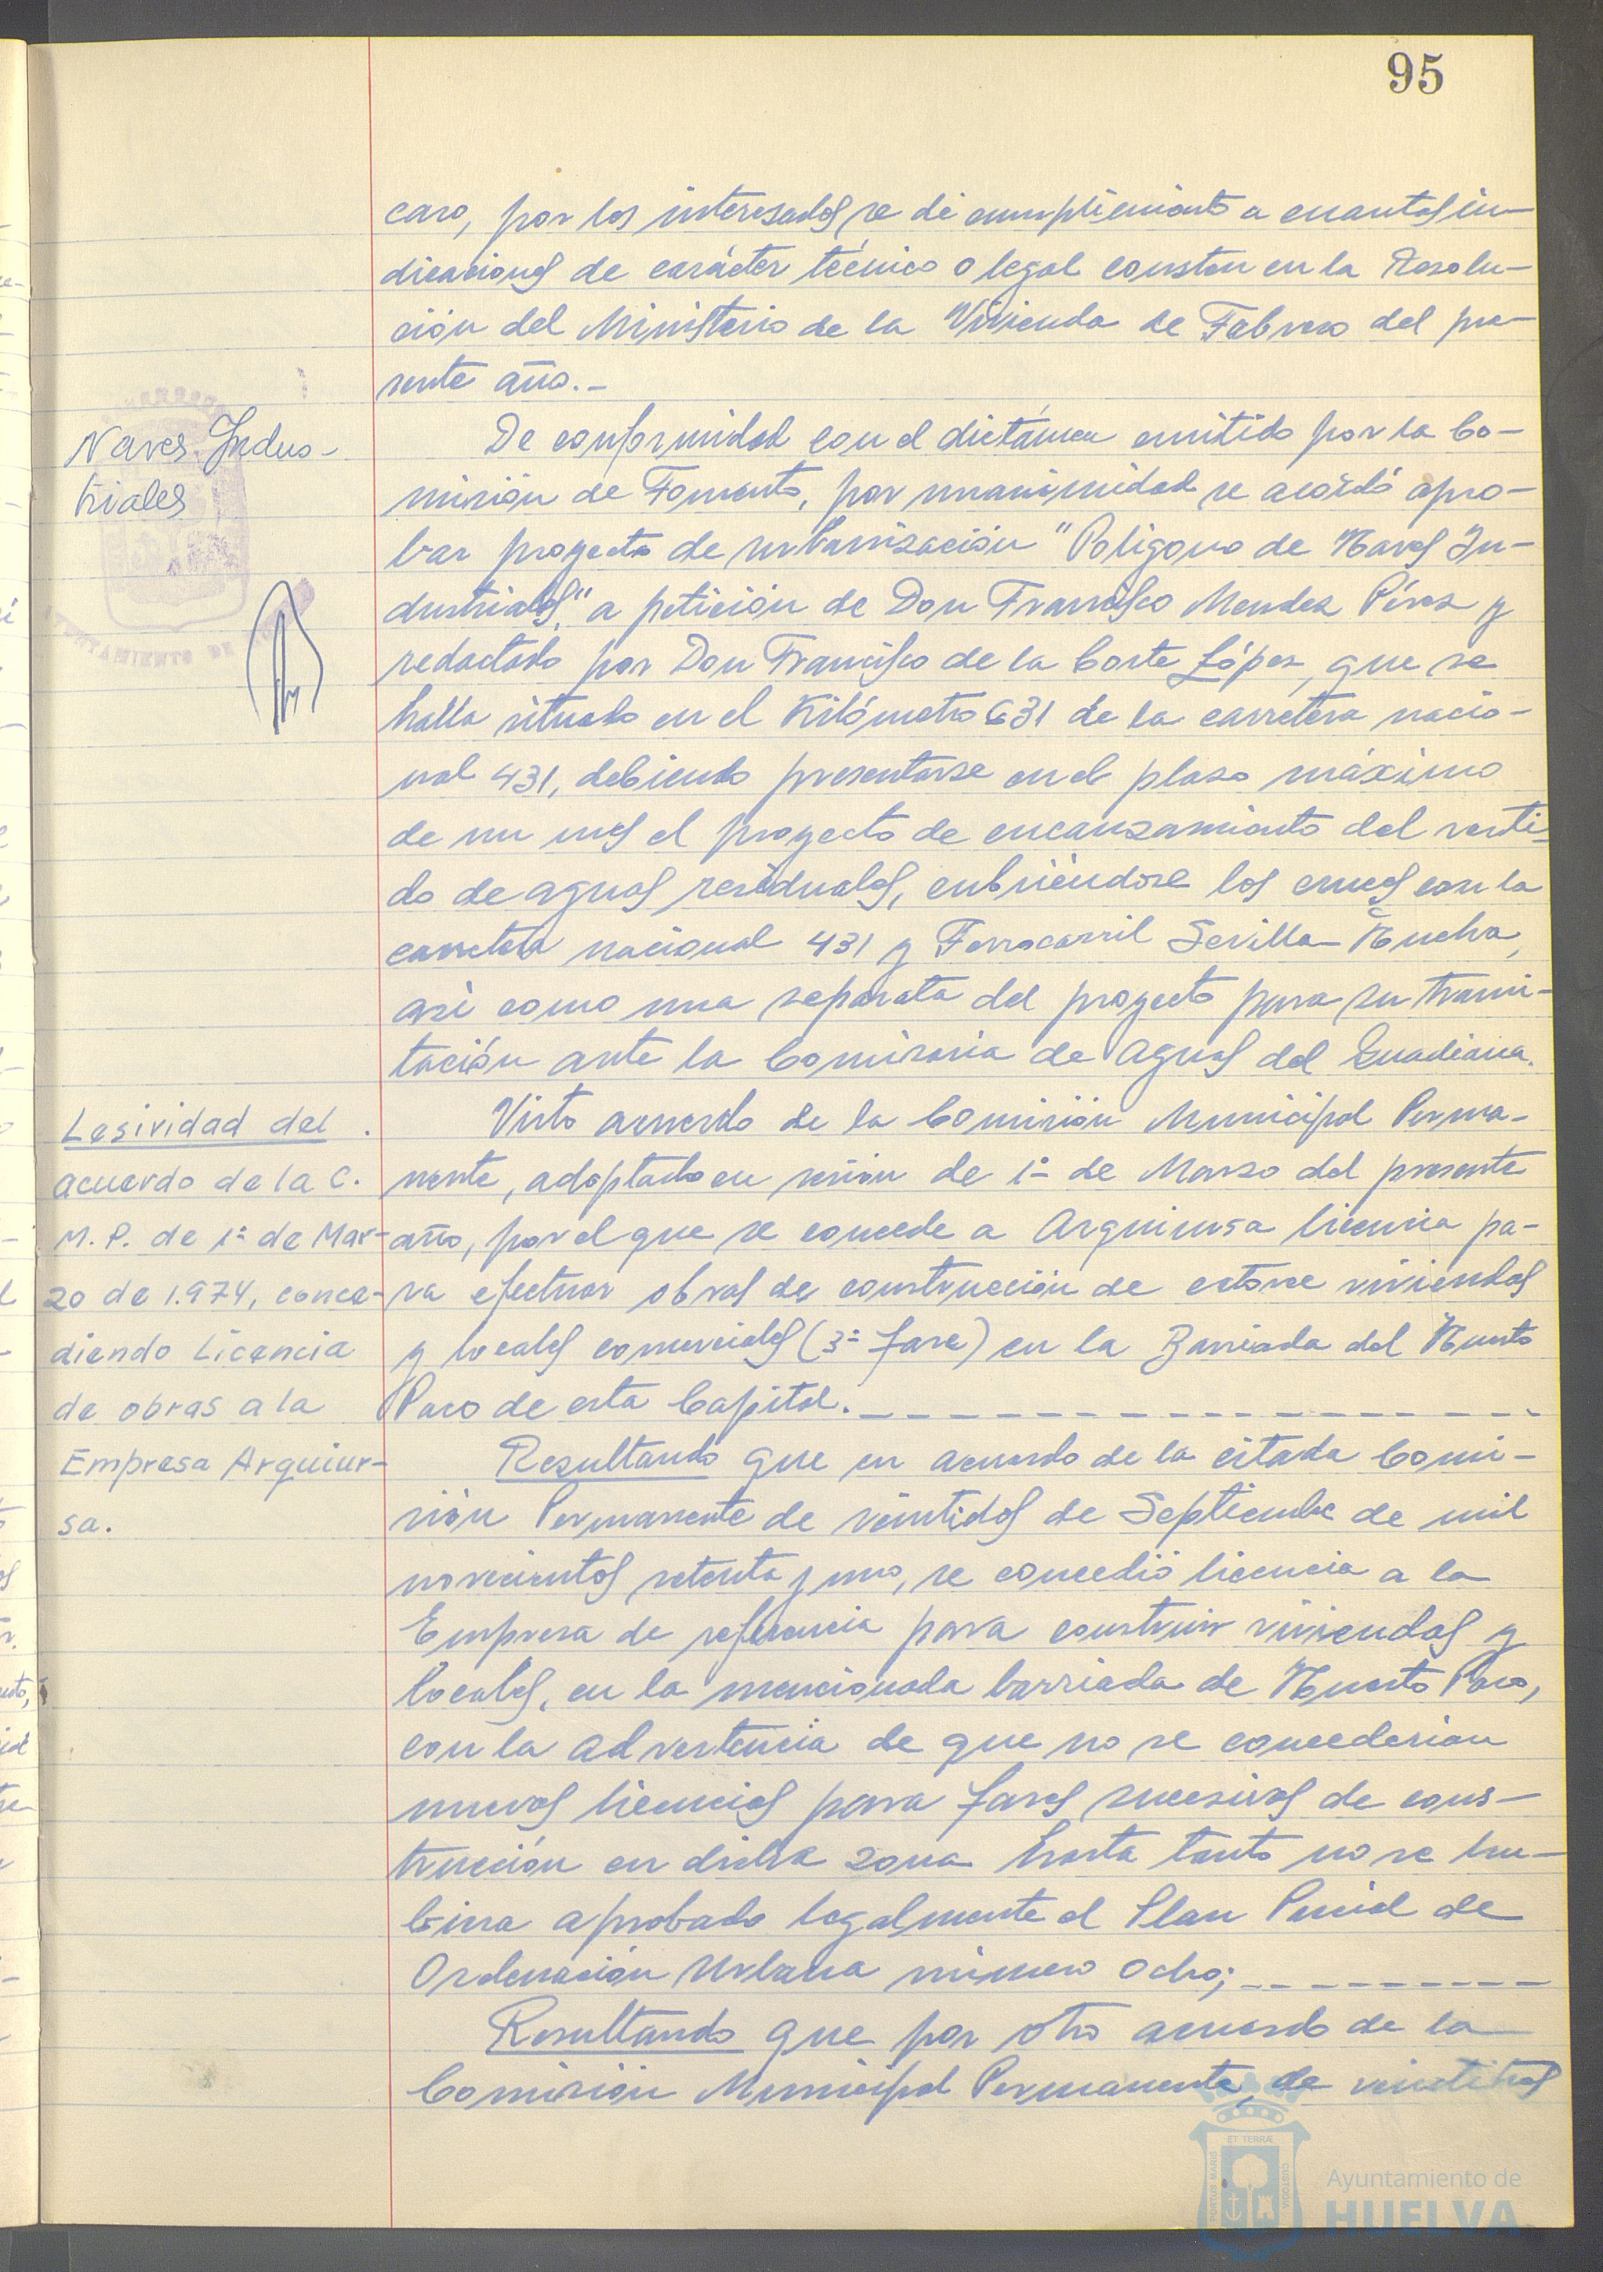 95
caso, por los interesados se dé cumplimiento a cuantas in-
dicaciones de carácter técnico o legal consten en la Resolu-
ción del Ministerio de la Vivienda de Febrero del pre-
sente año.-
Naves Indus-
triales
De conformidad con el dictámen emitido por la Co-
misión de Fomento, por unanimidad se acordó apro-
bar proyecto de urbanización "Poligono de Naves In-
dustriales," a petición de Don Francisco Mendez Pérez y
redactado por Don Francisco de la Corte López, que se
halla situado en el Kilómetro 631 de la carretera nacio-
nal 431, debiendo presentarse en el plazo máximo
de un mes el proyecto de encauzamiento del verti-
do de aguas residuales, cubriéndose los cruces con la
carretera nacional 431 y Ferrocarril Sevilla-Huelva,
asi como una separata del proyecto para su trami-
tación ante la Comisaria de Aguas del Guadiana.
Lesividad del
acuerdo de la C.
M. P. de 1º de Mar-
zo de 1.974, conce-
diendo Licencia
de obras a la
Empresa Arquiur-
sa.
Visto acuerdo de la Comisión Municipal Perma-
nente, adoptado en sesión de 1º de Marzo del presente
año, por el que se concede a Arquiursa licencia pa-
ra efectuar obras de construcción de catorce viviendas
y locales comerciales (3ª fase) en la Barriada del Huerto
Paco de esta Capital.
Resultando que en acuerdo de la citada Comi-
sión Permanente de veintidos de Septiembre de mil
novecientos setenta y uno, se concedió licencia a la
Empresa de referencia para construir viviendas y
locales, en la mencionada barriada de Huerto Paco,
con la advertencia de que no se concederian
nuevas licencias para fases sucesivas de cons-
trucción en dicha zona hasta tanto no se hu-
biera aprobado legalmente el Plan Parcial de
Ordenación Urbana número Ocho;
Resultando que por otro acuerdo de la
Comisión Municipal Permanente, de veintitres
AYUNTAMIENTO DE
PORTUS MARIS ET TERRÆ CUSTODIA
Ayuntamiento de
HUELVA